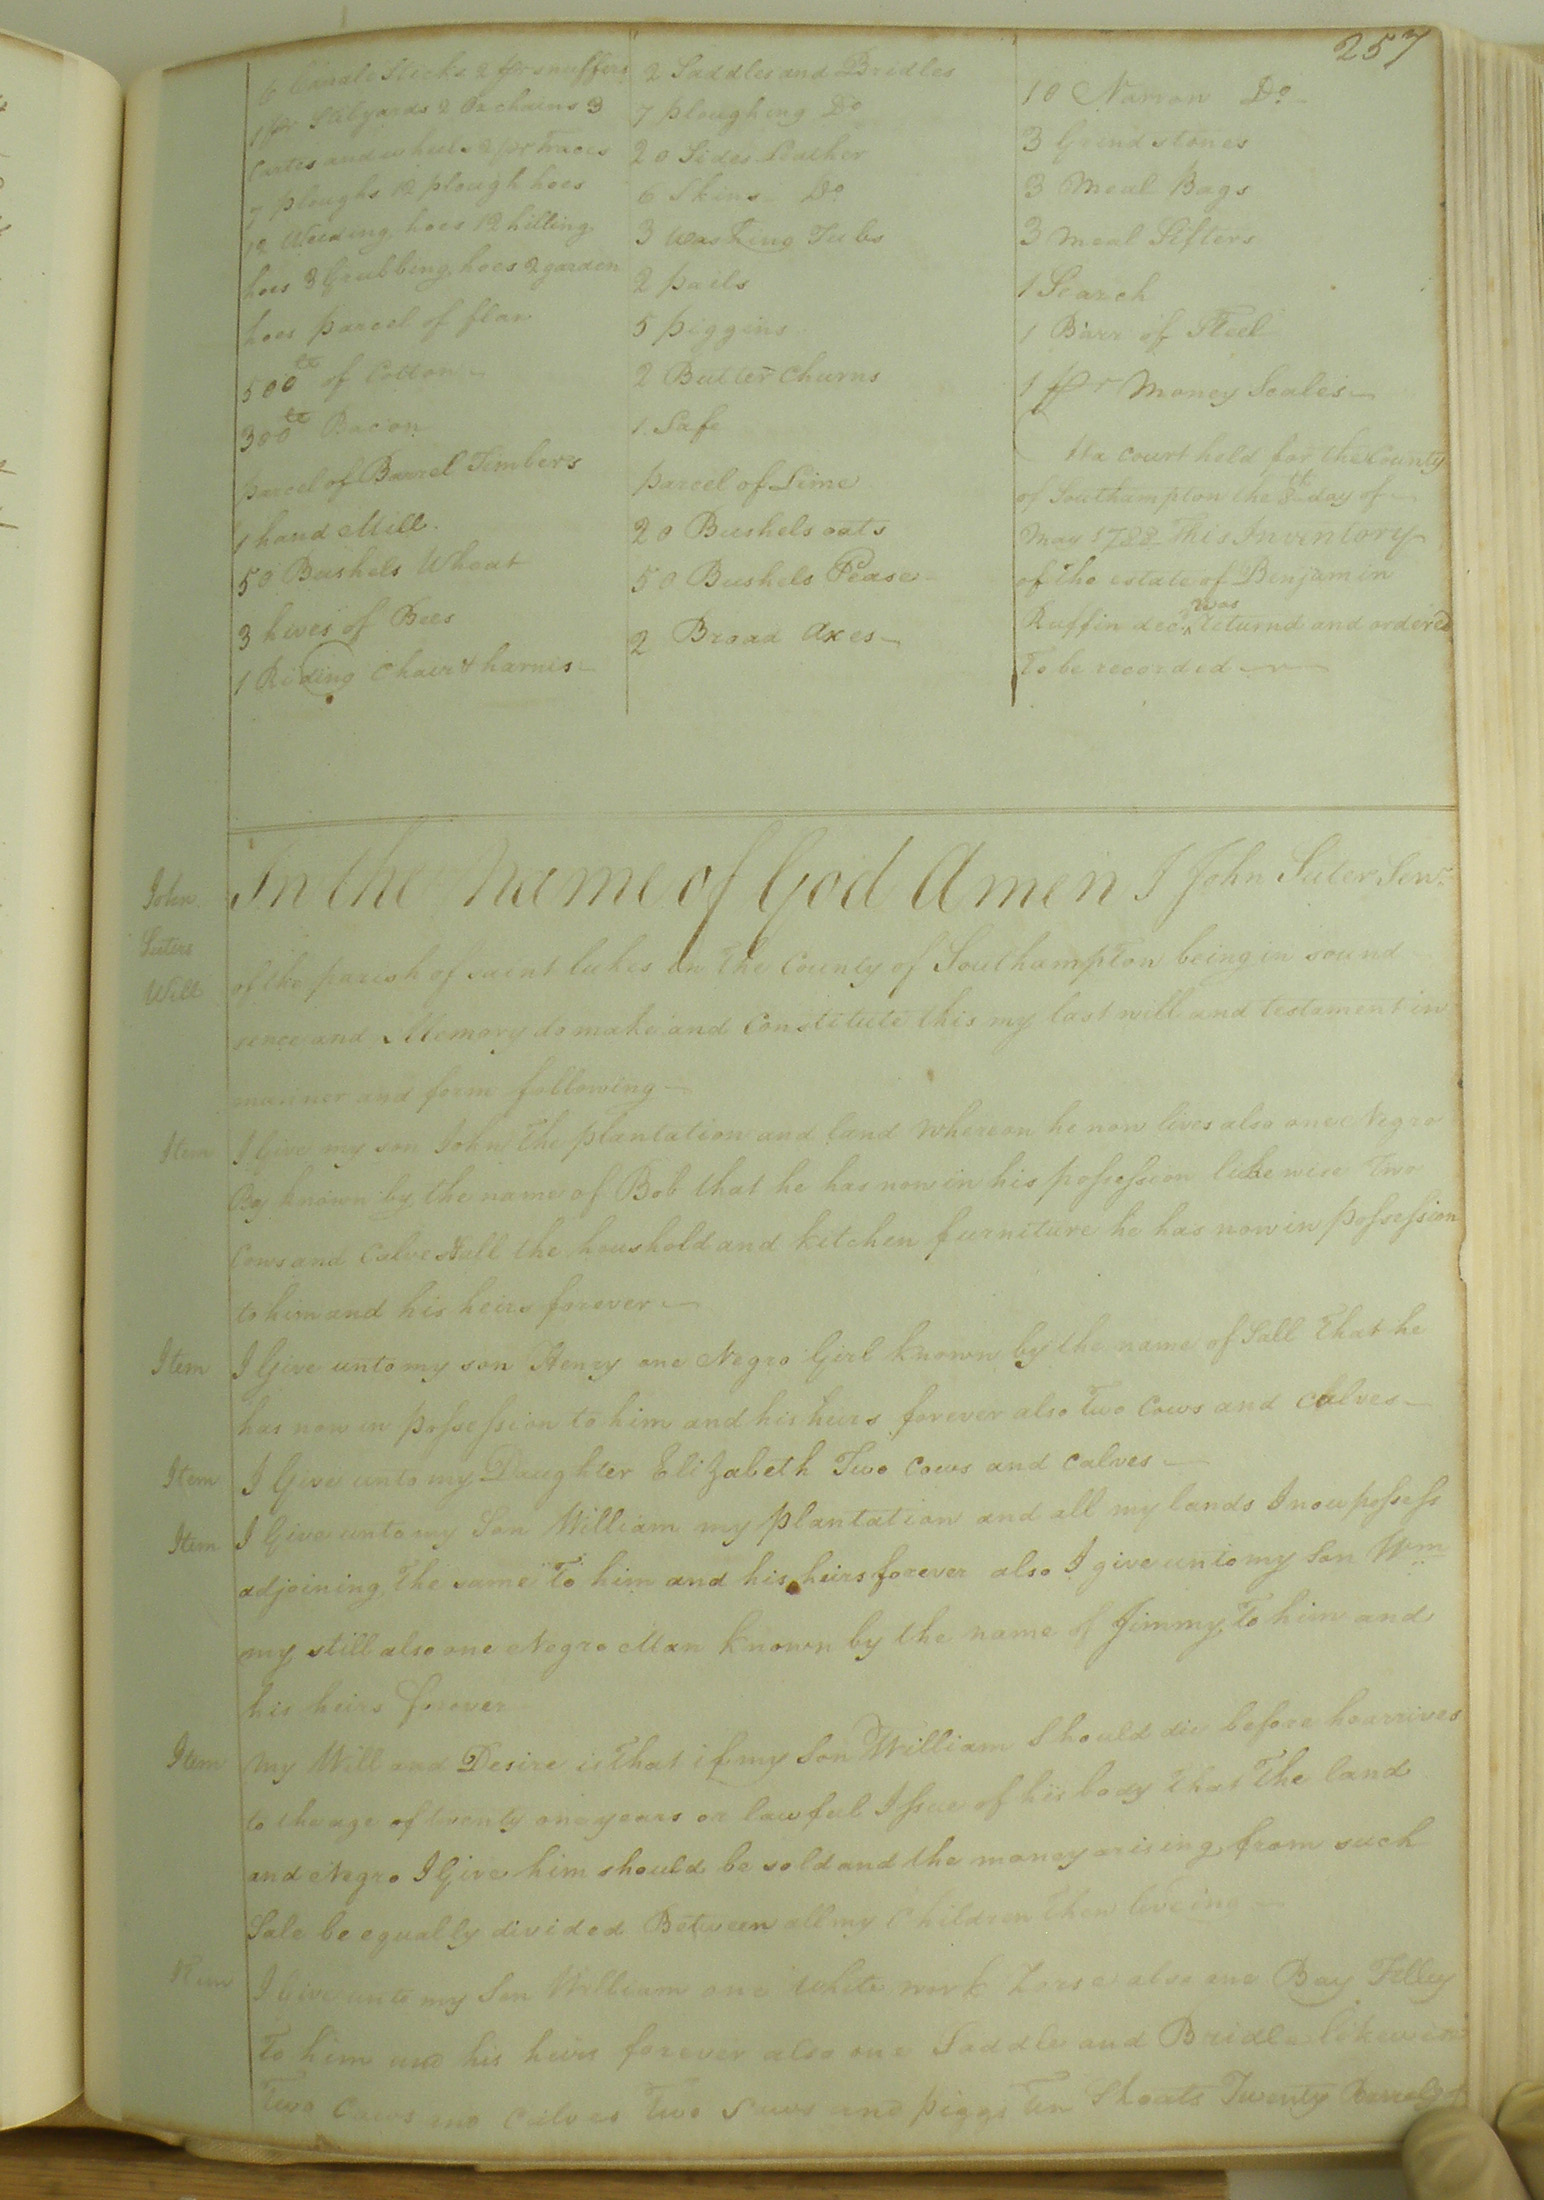 257
6 Candle Sticks 2 pr snuffers
1 pr Stilyards 2 Ox chains 3
Cartes and wheels 2 pr Traces
7 ploughs 12 plough hoes
12 Weeding hoes 12 hilling
hoes 3 Grubbing hoes 2 garden
hoes parcel of flax
500 lb of Cotton
300 lb Bacon
parcel of Barrel Timbers
1 hand Mill
50 Bushels Wheat
3 hives of Bees
1 Riding Chair & harnis
2 Saddles and Bridles
7 ploughing Do
20 Sides Leather
6 Skins Do
3 washing Tubs
2 pails
5 piggins
2 Butter Churns
1 Safe
parcel of Lime
20 Bushels oats
50 Bushels Pease
2 Broad Axes
10 Narrow Do
3 Grind stones
3 Meal Bags
3 meal Sifters
1 Search
1 Barr of Steel
1 pr Money Scales
At a court held for the County
of Southampton the 8th day of
May 1788 This Inventory
of the estate of Benjamin
Ruffin dec. was returnd and ordered
to be recorded
John
Suters
Will
In the Name of God Amen I John Suter Senr
of the parish of saint lukes in the County of Southampton being in sound
sence and Memory do make and Constitute this my last will and testament in
manner and form following
Item I Give my son John the plantation and land whereon he now lives also one Negro
Boy known by the name of Bob that he has now in his possession likewise Two
Cows and Calves & all the houshold and kitchen furniture he has now in possession
to him and his heirs forever
Item I Give unto my son Henry one Negro Girl known by the name of Sall that he
has now in possession to him and his heirs forever also Two Cows and Calves
Item I Give unto my Daughter Elizabeth Two Cows and Calves
Item I Give unto my Son William my plantation and all my lands I now possess
adjoining the same To him and his heirs forever also I give unto my Son Wm
my still also one Negro Man known by the name of Jimmy To him and
his heirs forever
Item My Will and Desire is that if my Son William Should die before he arrives
to the age of twenty one years or lawful Issue of his body that the land
and Negro I Give him should be sold and the money arising from such
Sale be equally divided Between all my Children then liveing
Item I Give unto my Son William one white work horse also one Bay Filley
To him and his heirs forever also one Saddle and Bridle likewise
Two Cows and Calves Two Sows and piggs Ten Shoats Twenty Barrels of